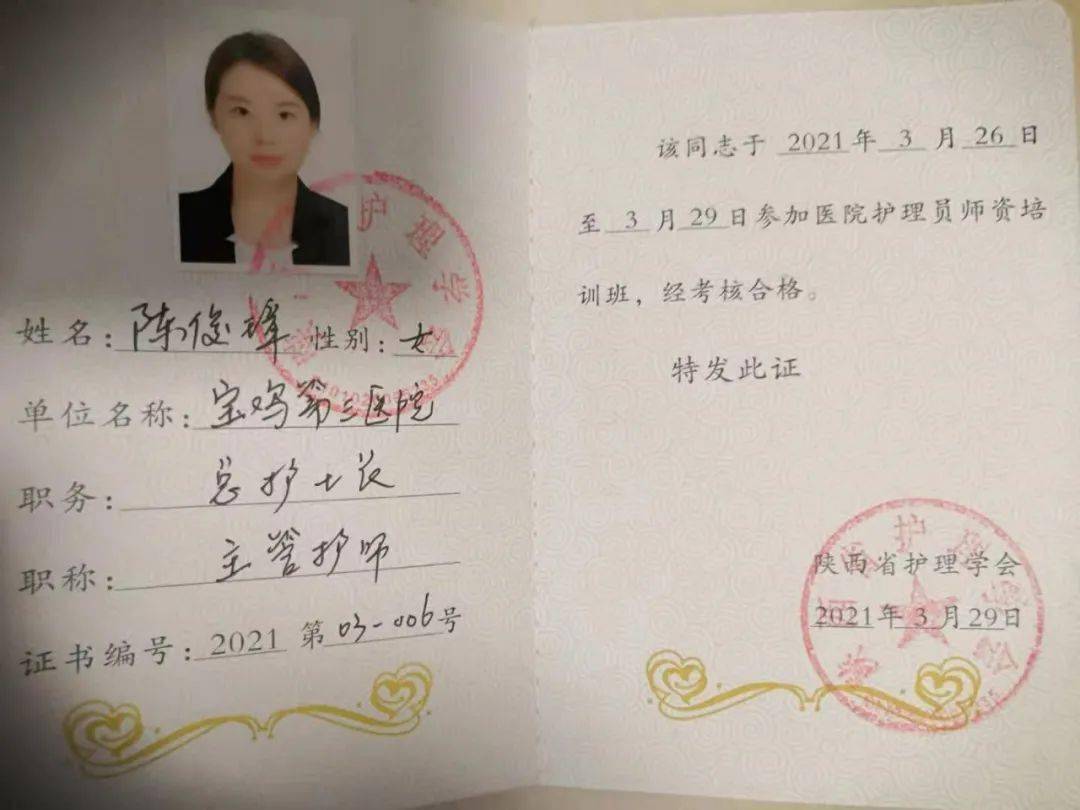 姓名：陈俊峰 性别：女
单位名称：宝鸡第三医院
职务：总护士长
职称：主管护师
证书编号：2021 第03-006号
该同志于 2021年 3 月 26 日
至 3 月 29 日参加医院护理员师资培
训班，经考核合格。
特发此证
陕西省护理学会
2021年 3 月 29日
护理学会